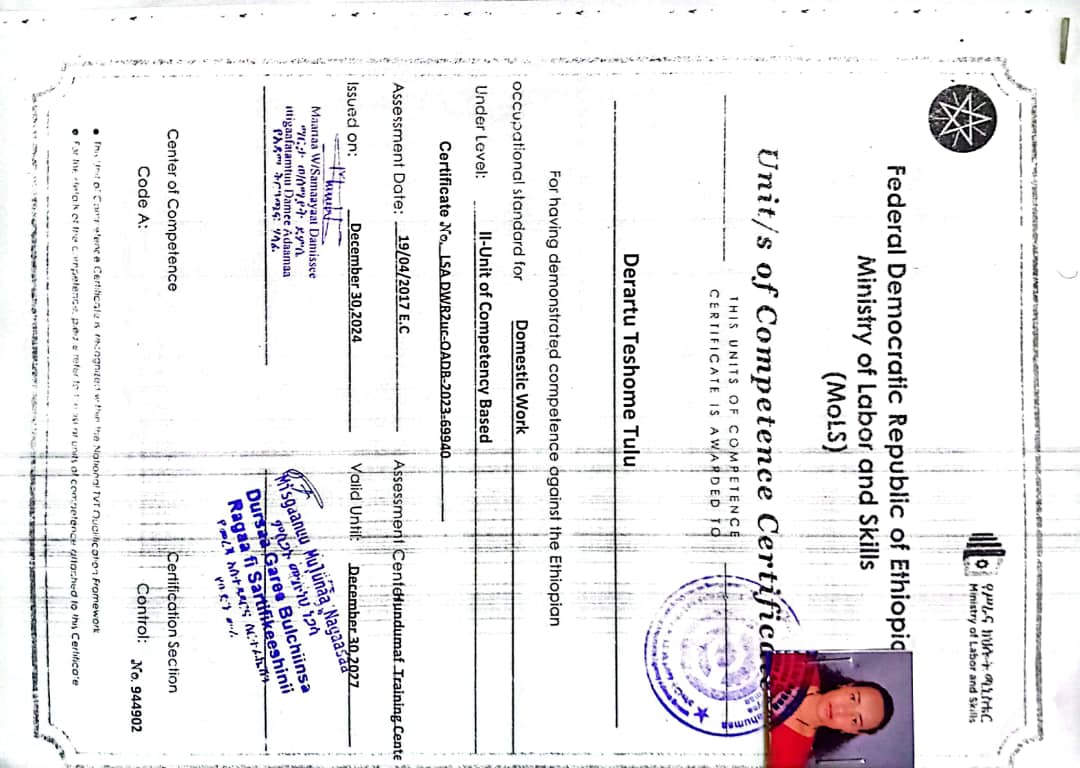 የሥራና ክህሎት ሚኒስቴር
Ministry of Labor and Skills
Federal Democratic Republic of Ethiopia
Ministry of Labor and Skills
(MoLS)
Unit/s of Competence Certificate
THIS UNITS OF COMPETENCE
CERTIFICATE IS AWARDED TO
Derartu Teshome Tulu
For having demonstrated competence against the Ethiopian
occupational standard for Domestic Work
Under Level: II-Unit of Competency Based
Certificate No. LSA DWR2uc-OADB-2023-69940
Assessment Date: 19/04/2017 E.C Assessment Center Hundumaf Training Cente
Issued on: December 30,2024 Valid Until: December 30,2027
Maanaa W/Samaayaat Damissee
Ittigaafatamtuu Damee Adaamaa
Misgaanuu Mul'unaa Nagaasaa
Dursaa Garee Bulchiinsa
Ragaa fi Sartifikeeshinii
Center of Competence Certification Section
Code A: Control: No. 944902
• This Unit of Competence Certificate is recognized within the National TVT Qualification Framework
• For the details of the competence, please refer to the list of units of competence attached to this Certificate